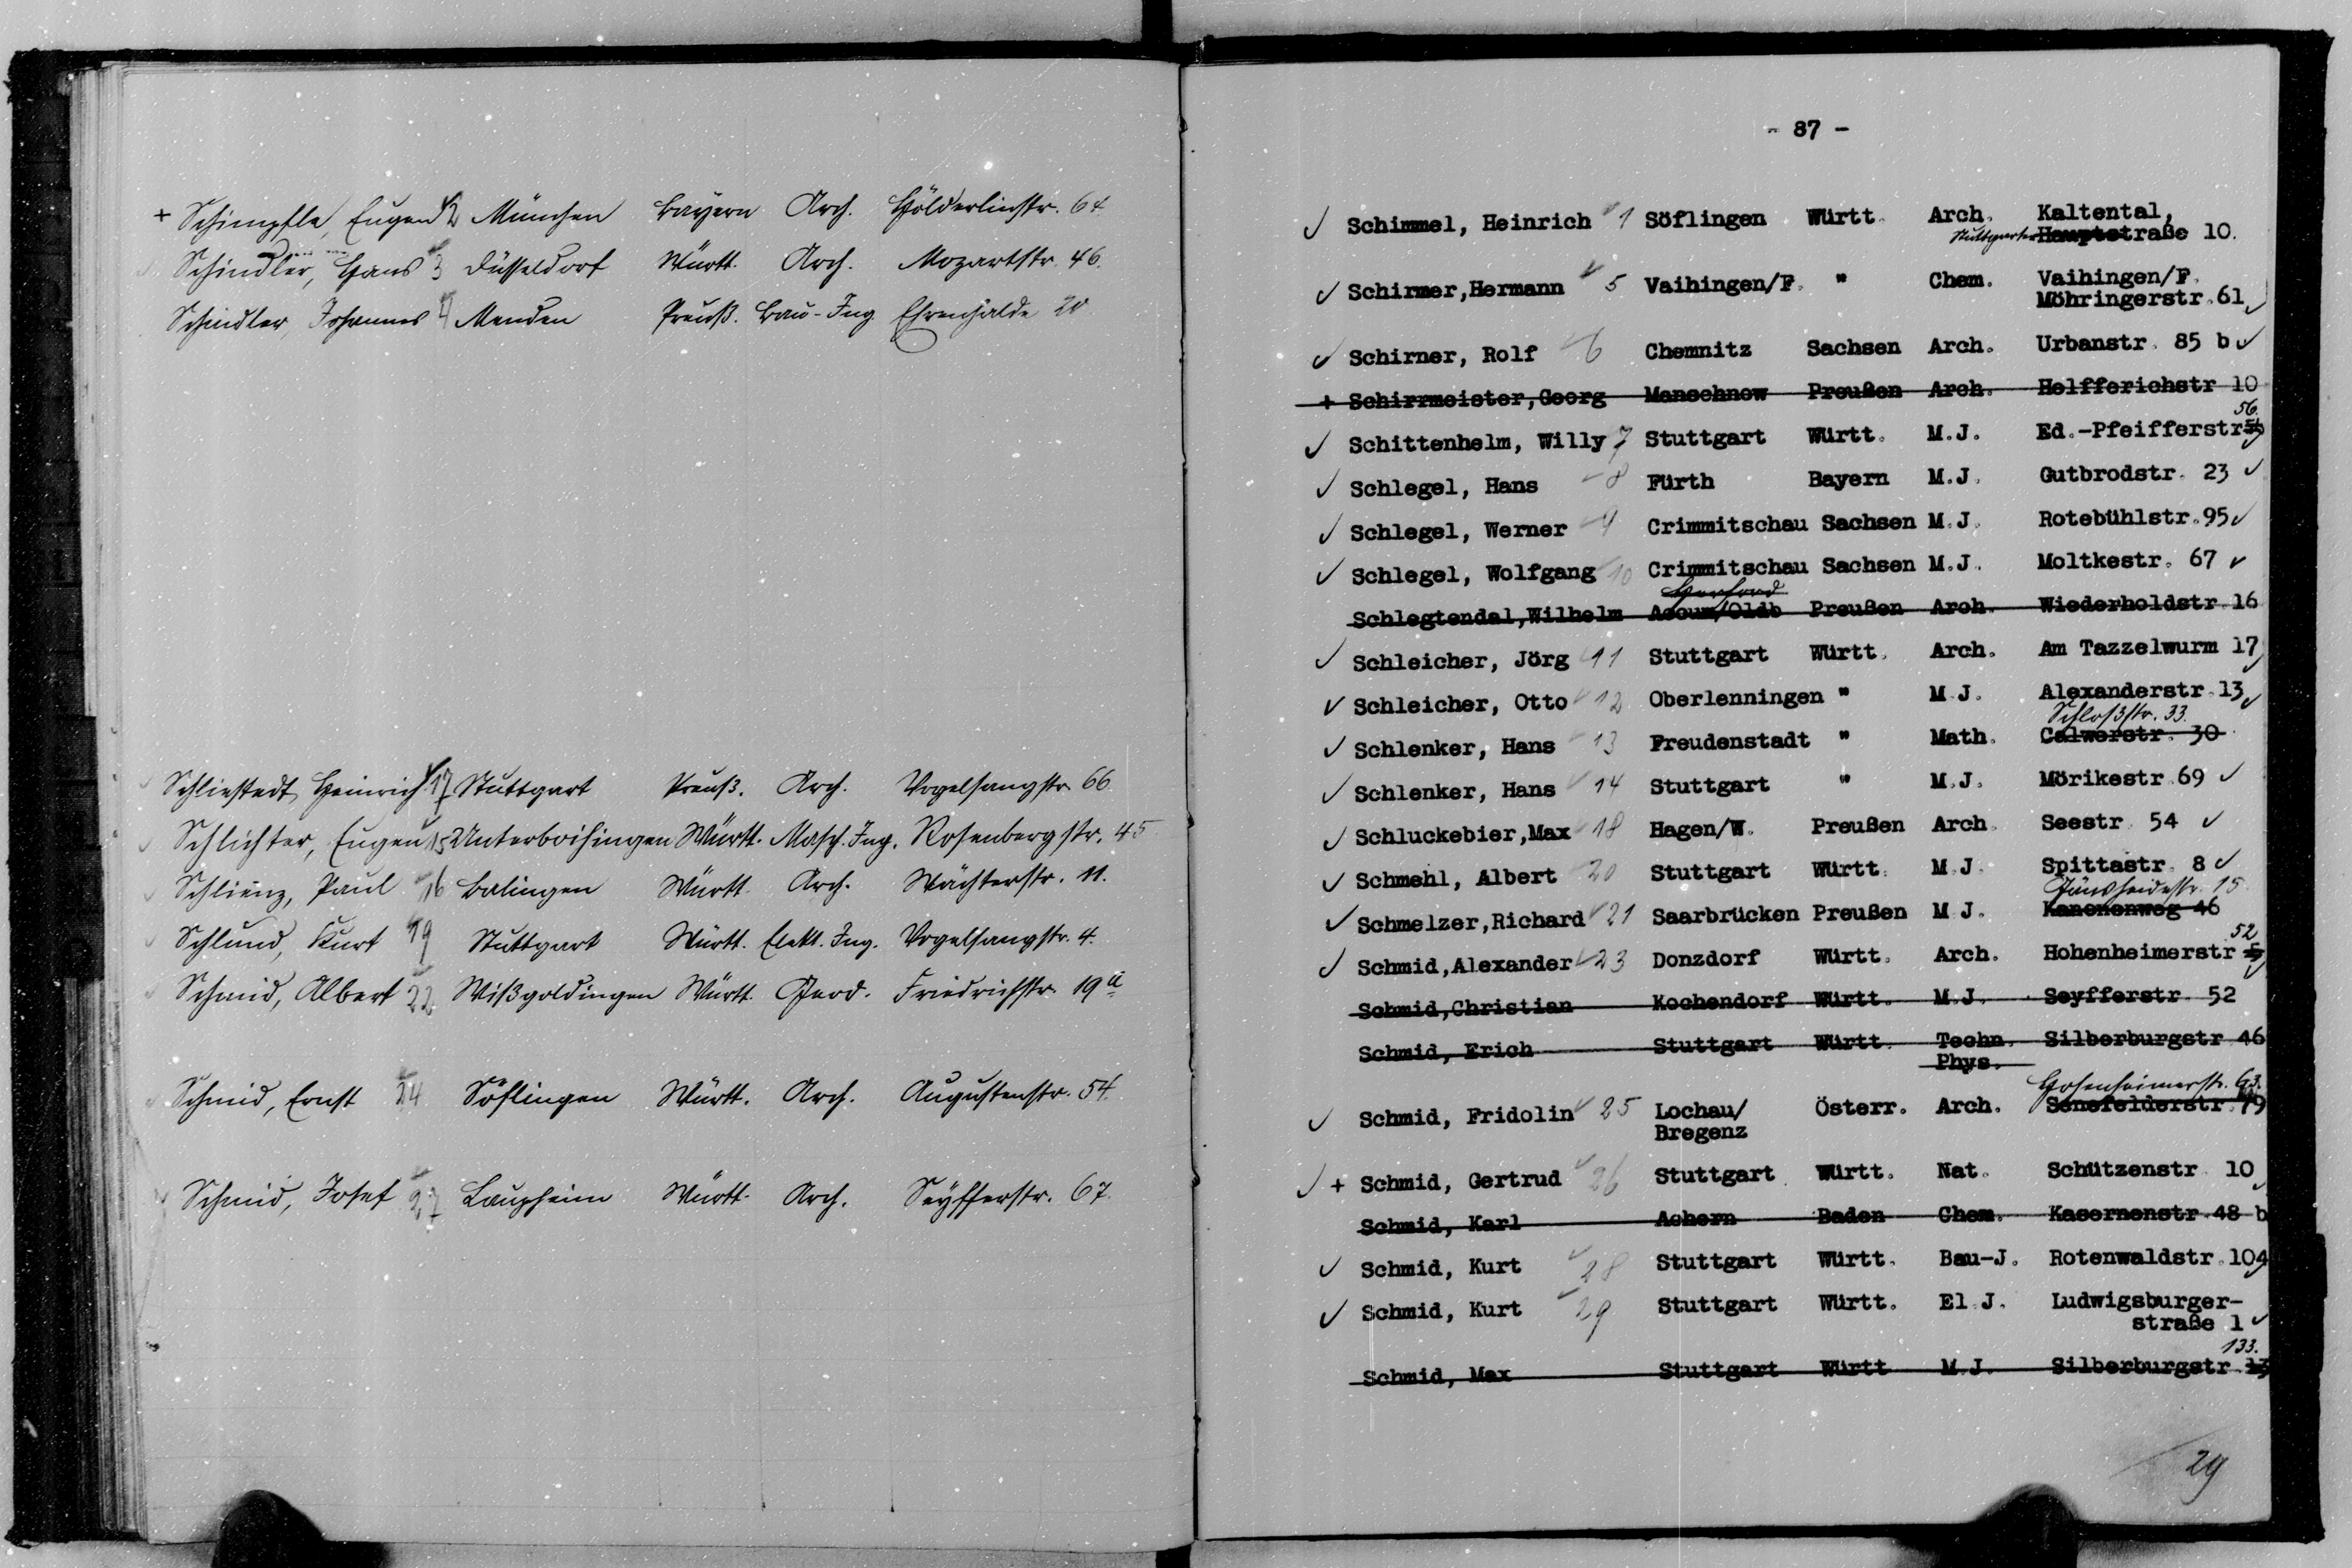 + Schimpfle, Eugen 2 München Bayern Arch. Hölderlinstr. 64.
Schindler, Hans 3 Düsseldorf Württ. Arch. Mozartstr. 46.
Schindler, Johannes 4 Menden Preuß. Bau-Ing. Ehrenhalde 20
Schliestedt, Heinrich 17 Stuttgart Preuß. Arch. Vogelsangstr. 66
Schlichter, Eugen 15 Unterboihingen Württ. Masch. Ing. Rosenbergstr. 45
Schlienz, Paul 16 Balingen Württ. Arch. Wächterstr. 11.
Schlund, Kurt 19 Stuttgart Württ. Elekt. Ing. Vogelsangstr. 4.
Schmid, Albert 22 Wißgoldingen Württ. Geod. Friedrichstr. 19 a
Schmid, Ernst 24 Söflingen Württ. Arch. Augustenstr. 54.
Schmid, Josef 27 Laupheim Württ. Arch. Seyfferstr. 67.
- 87 -
✓ Schimmel, Heinrich 1 Söflingen Württ. Arch. Kaltental,
Stuttgarter Hauptstraße 10.
✓ Schirmer,Hermann 5 Vaihingen/F. " Chem. Vaihingen/F.
Möhringerstr.61 ✓
✓ Schirner, Rolf 6 Chemnitz Sachsen Arch. Urbanstr. 85 b ✓
+ Schirrmeister,Georg Manschnow Preußen Arch. Helfferichstr 10
56.
✓ Schittenhelm, Willy 7 Stuttgart Württ. M.J. Ed.-Pfeifferstr
✓ Schlegel, Hans 8 Fürth Bayern M.J. Gutbrodstr. 23 ✓
✓ Schlegel, Werner 9 Crimmitschau Sachsen M.J. Rotebühlstr.95 ✓
✓ Schlegel, Wolfgang 10 Crimmitschau Sachsen M.J. Moltkestr. 67 ✓
Herford
Schlegtendal,Wilhelm Accum/Oldb Preußen Arch. Wiederholdstr.16
✓ Schleicher, Jörg 11 Stuttgart Württ. Arch. Am Tazzelwurm 17
✓ Schleicher, Otto 12 Oberlenningen " M.J. Alexanderstr.13 ✓
Schloßstr. 33.
✓ Schlenker, Hans 13 Freudenstadt " Math. Calwerstr. 30
✓ Schlenker, Hans 14 Stuttgart " M.J. Mörikestr.69 ✓
✓ Schluckebier,Max 18 Hagen/W. Preußen Arch. Seestr. 54 ✓
✓ Schmehl, Albert 20 Stuttgart Württ. M.J. Spittastr. 8 ✓
15.
✓ Schmelzer,Richard 21 Saarbrücken Preußen M J. Kanonenweg 46
52
✓ Schmid,Alexander 23 Donzdorf Württ. Arch. Hohenheimerstr
Schmid,Christian Kochendorf Württ. M.J. Seyfferstr. 52
Schmid, Erich Stuttgart Württ. Techn. Silberburgstr 46
Phys.
Hohenheimerstr. 63.
✓ Schmid, Fridolin 25 Lochau/ Österr. Arch. Senefelderstr.79
Bregenz
✓ + Schmid, Gertrud 26 Stuttgart Württ. Nat. Schützenstr. 10
Schmid, Karl Achern Baden Chem. Kasernenstr.48 b
✓ Schmid, Kurt 28 Stuttgart Württ. Bau-J. Rotenwaldstr.104
✓ Schmid, Kurt 29 Stuttgart Württ. El.J. Ludwigsburger-
straße 1 ✓
133.
Schmid, Max Stuttgart Württ M.J. Silberburgstr.13
29